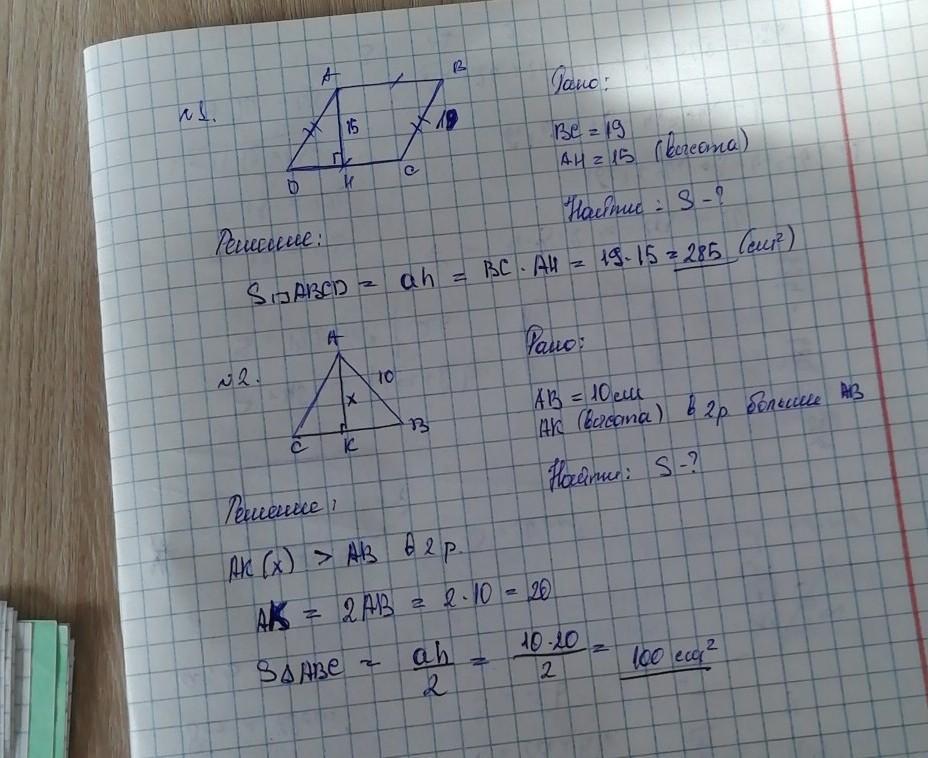 №1.
A
B
15
19
D
H
C
Дано:
BC = 19
AH = 15 (высота)
Найти: S - ?
Решение:
S▱ABCD = ah = BC · AH = 19 · 15 = 285 (см²)
№2.
A
10
x
C
K
B
Дано:
AB = 10 см
AK (высота) в 2р больше AB
Найти: S - ?
Решение:
AK(x) > AB в 2 р.
AK = 2AB = 2·10 = 20
S△ABC = ah/2 = 10·20/2 = 100 см²